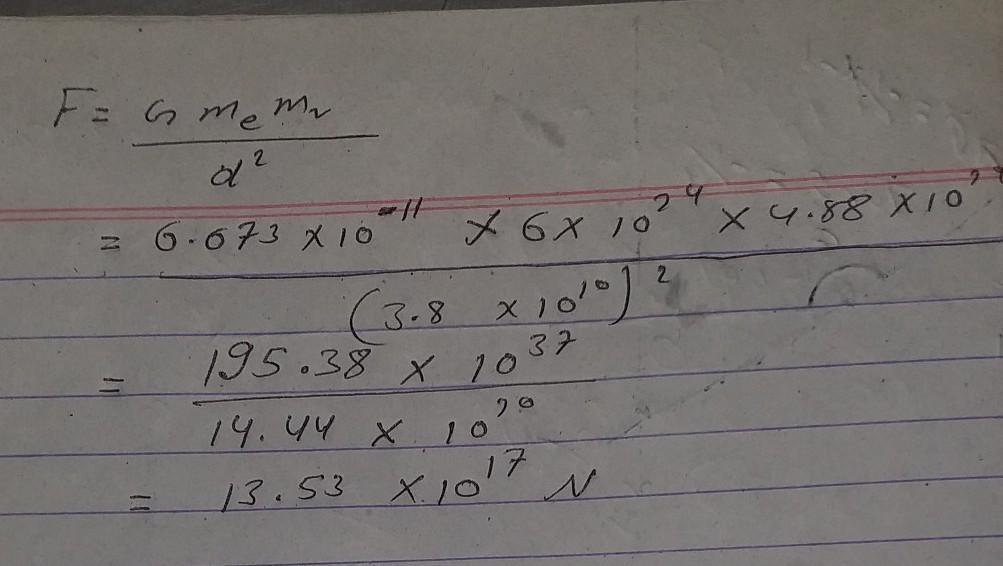 F = G mₑ mᵥ / d²
= 6.673 × 10⁻¹¹ × 6 × 10²⁴ × 4.88 × 10²⁴ / (3.8 × 10¹⁰)²
= 195.38 × 10³⁷ / 14.44 × 10²⁰
= 13.53 × 10¹⁷ N